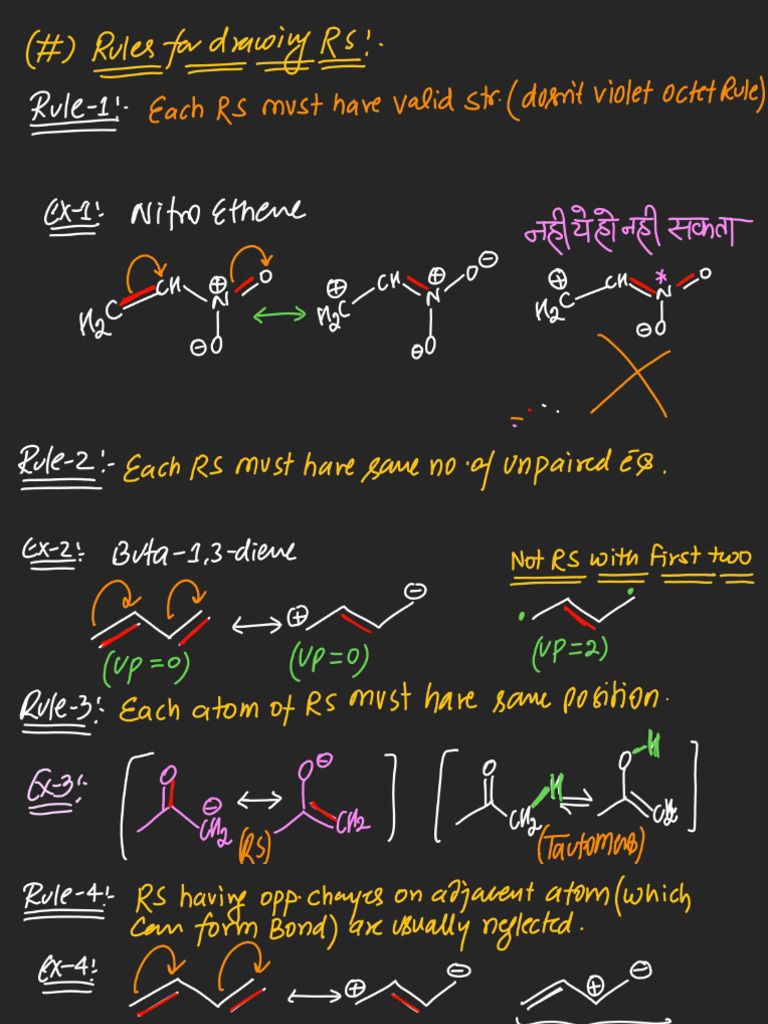 (#) Rules for drawing RS!:
Rule-1!:- Each RS must have valid str. (dosn't violet octet Rule)
Ex-1!: Nitro Ethene
नही ये हो नही सकता
H2C CH N⊕ O O⊖ ↔ ⊕ H2C CH N⊕ O⊖ O⊖ ⊕ H2C CH N* O O⊖
Rule-2!:- Each RS must have same no. of unpaired ēs.
Ex-2!: Buta-1,3-diene
Not RS with first two
⊕ ⊖
(UP=0) (UP=0) (UP=2)
Rule-3!: Each atom of RS must have same position.
Ex-3!: O ⊖ CH2 ↔ O⊖ CH2 (RS) O CH2 H ⇌ O-H CH2 (Tautomers)
Rule-4!- RS having opp. charges on adjacent atom (which
can form Bond) are usually neglected.
Ex-4!: ↔ ⊕ ⊖ ⊕ ⊖